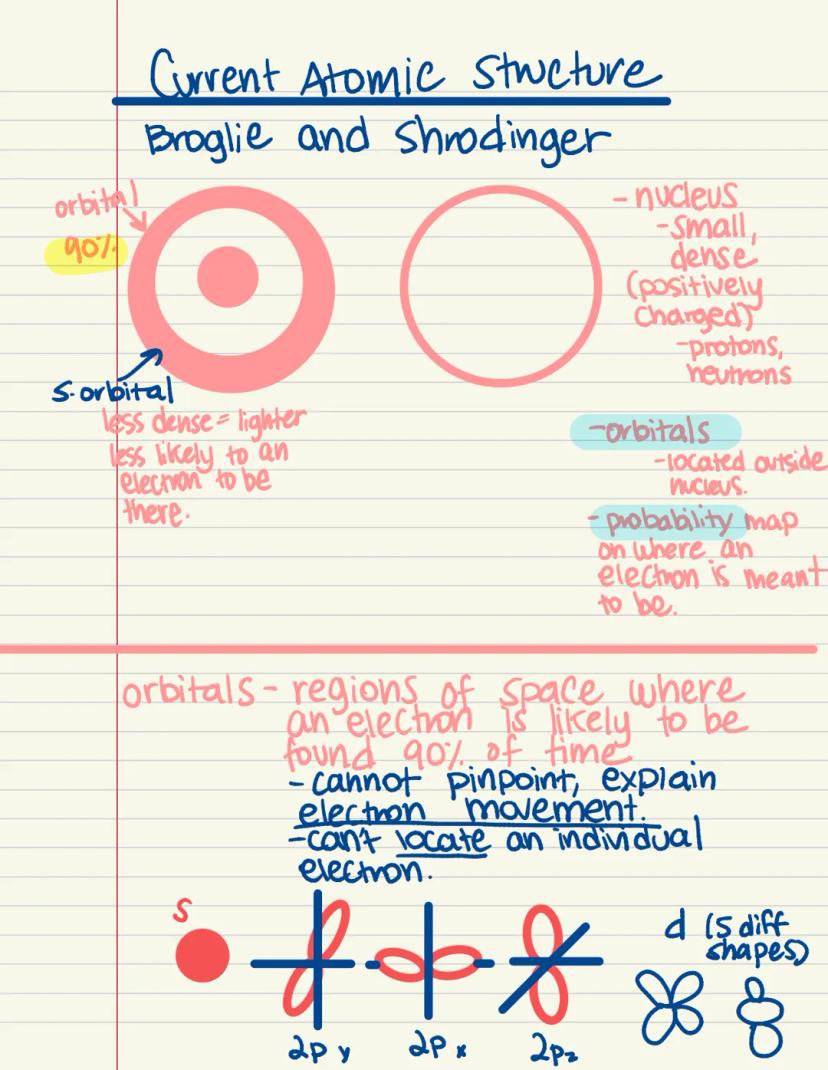 Current Atomic Structure
Broglie and Shrodinger
orbital
90%
s-orbital
less dense = lighter
less likely to an
electron to be
there.
- nucleus
- small,
dense
(positively
charged)
- protons,
neutrons
- orbitals
- located outside
nucleus.
- probability map
on where an
electron is meant
to be.
orbitals - regions of space where
an electron is likely to be
found 90% of time
- cannot pinpoint, explain
electron movement.
- can't locate an individual
electron.
s
2p y
2p x
2p z
d (5 diff
shapes)